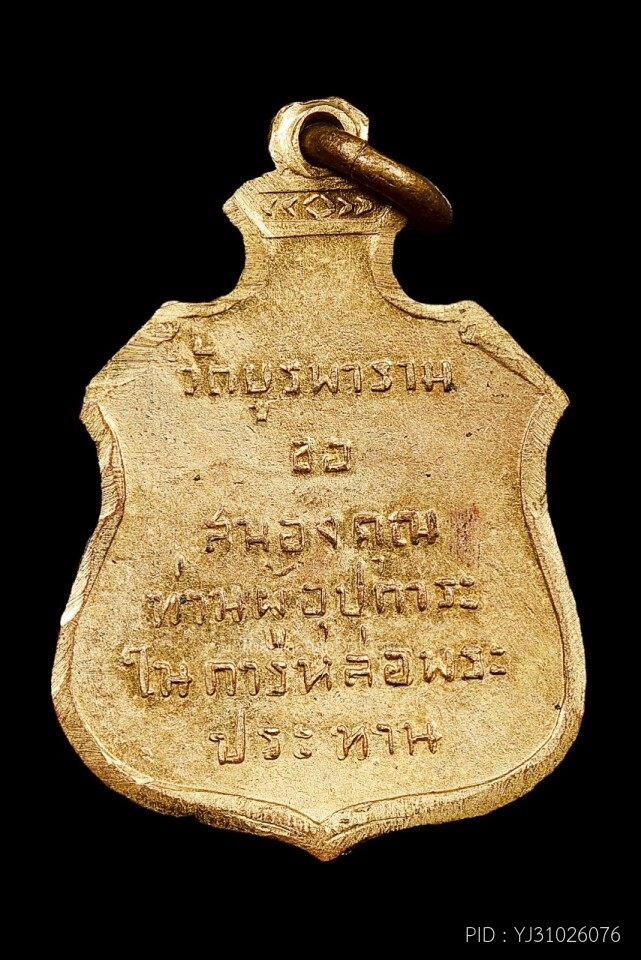 วัดบูรพาราม
ขอ
สนองคุณ
ท่านผู้อุปการะ
ในการหล่อพระ
ประทาน
PID : YJ31026076